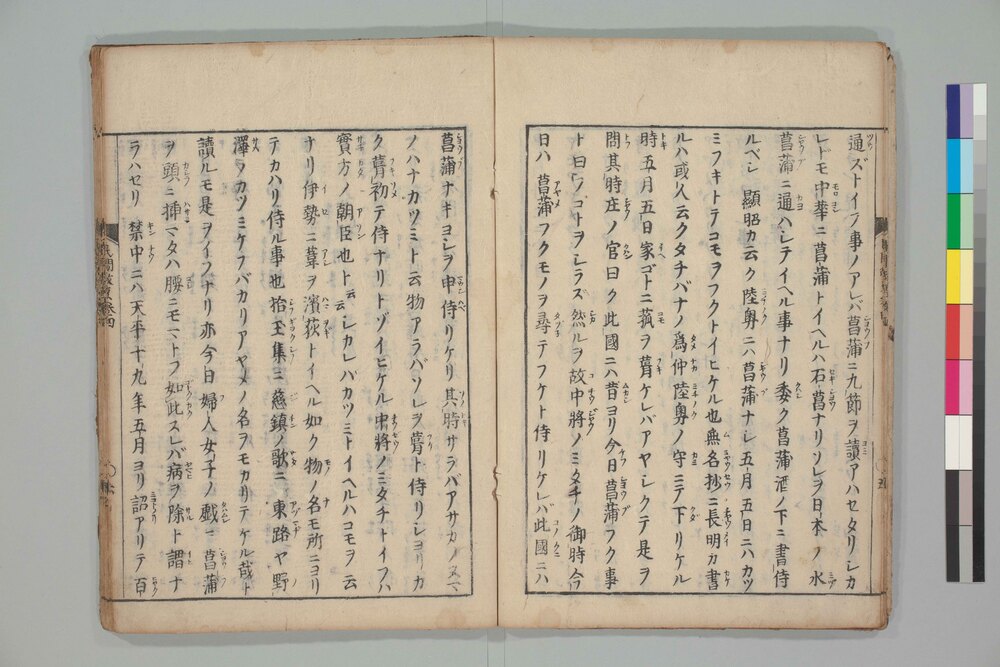 通ズトイフ事ノアレバ菖蒲ニ九節ヲ讀アハセタリシカ
レドモ中華ニ菖蒲トイヘルハ石菖ナリソレヲ日本ノ水
菖蒲ニ通ハシテイヘル事ナリ委ク菖蒲酒ノ下ニ書侍
ルベシ 顯昭カ云ク陸奥ニハ菖蒲ナシ五月五日ニハカツ
ミフキトテコモヲフクトイヒケル也無名抄ニ長明カ書
ルハ或人云クタチバナノ爲仲陸奥ノ守ニテ下リケル
時五月五日家ゴトニ菰ヲ葺ケレバアヤシクテ是ヲ
問其時庄ノ官曰ク此國ニハ昔ヨリ今日菖蒲フク事
ト曰フコヲシラズ然ルヲ故中將ノミタチノ御時今
日ハ 菖蒲フクモノヲ尋テフケト侍リケレバ此國ニハ
菖蒲ナキヨシヲ申侍リケリ其時サラバアサカノヌマ
ノハナカツミト云物アラバソレヲ葺ト侍リシヨリカ
ク葺初テ侍ナリトゾイヒケル中將ノミタチトイフハ
實方ノ朝臣也ト云云シカレバカツミトイヘルハコモヲ云
ナリ伊勢ニ葦ヲ濱荻トイヘル如ク物ノ名モ所ニヨリ
テカハリ侍ル事也拾玉集ニ慈鎮ノ歌ニ 東路ヤ野
澤ノカツミケフバカリアヤメノ名ヲモカリテケル哉ト
讀ルモ是ヲイフナリ亦今日婦人女子ノ戯ニ菖蒲
ヲ頭ニ挿マタハ腰ニモマトフ如此スレバ病ヲ除ト謂ナ
ラハセリ 禁中ニハ天平十九年五月ヨリ詔アリテ百